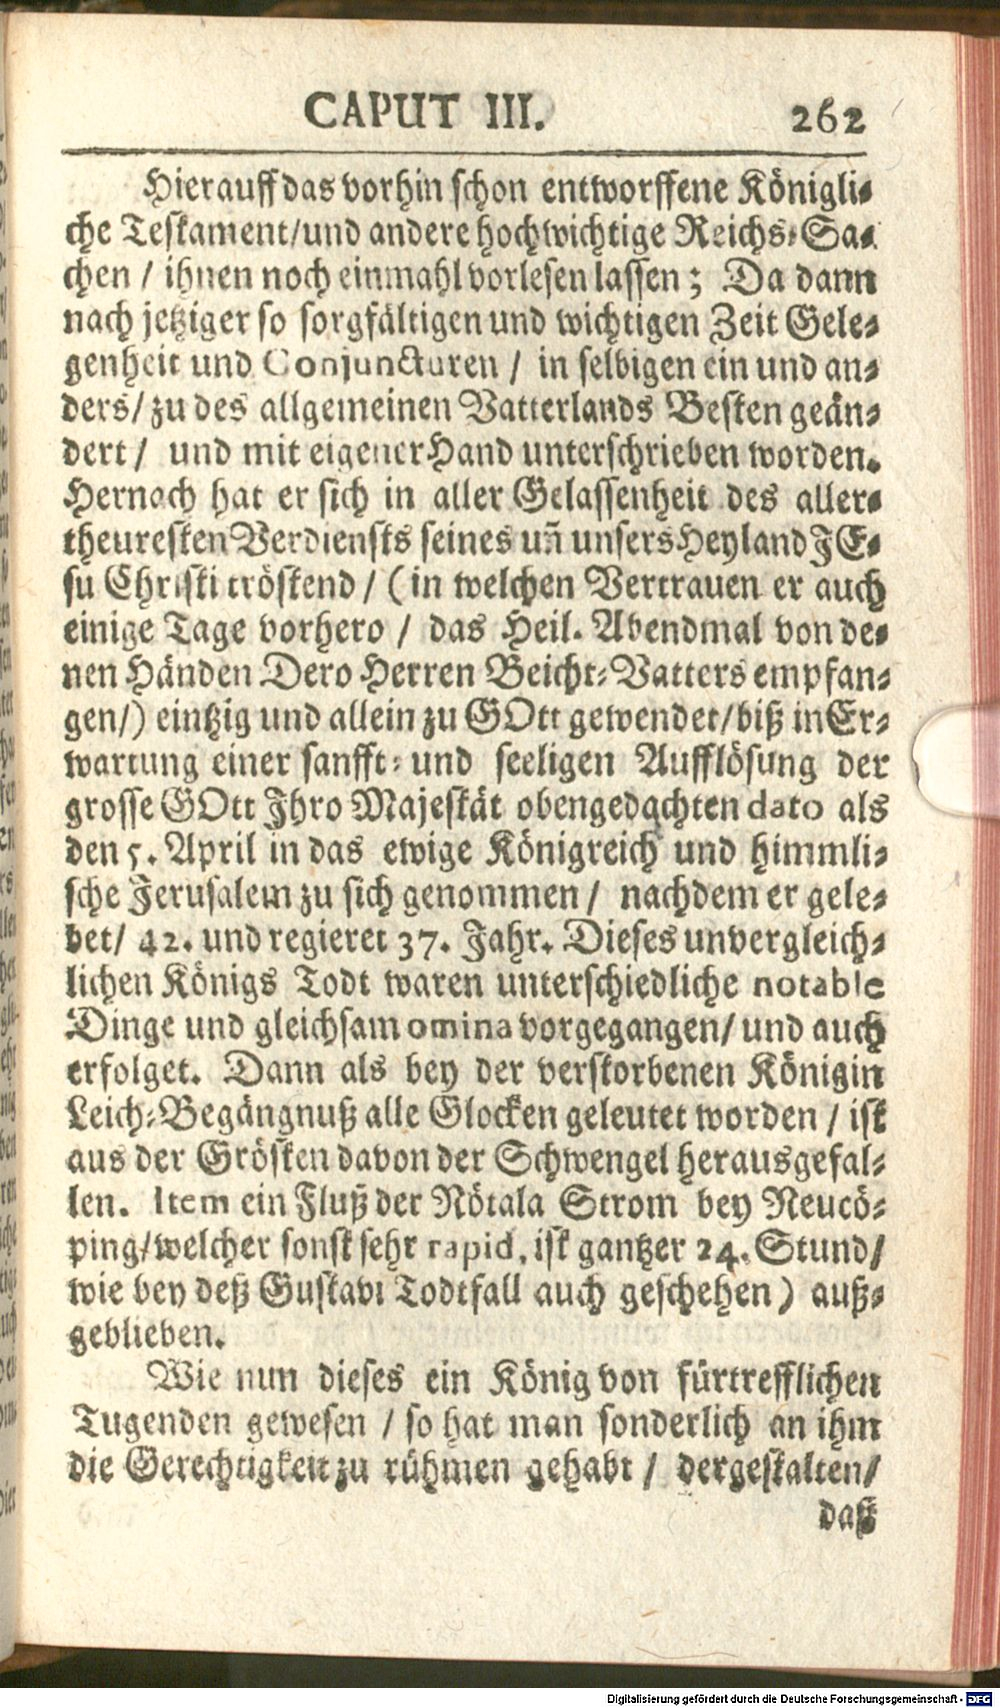 CAPUT III. 262
Hierauff das vorhin schon entworffene Königli-
che Testament/und andere hochwichtige Reichs-Sa-
chen / ihnen noch einmahl vorlesen lassen; Da dann
nach jetziger so sorgfältigen und wichtigen Zeit Gele-
genheit und Conjuncturen / in selbigen ein und an-
ders/ zu des allgemeinen Vatterlands Besten geän-
dert / und mit eigener Hand unterschrieben worden.
Hernach hat er sich in aller Gelassenheit des aller-
theuresten Verdiensts seines uñ unsers Heyland JE-
su Christi tröstend / (in welchen Vertrauen er auch
einige Tage vorhero / das Heil. Abendmal von de-
nen Händen Dero Herren Beicht-Vatters empfan-
gen/) eintzig und allein zu GOtt gewendet/biß in Er-
wartung einer sanfft- und seeligen Aufflösung der
grosse GOtt Ihro Majestät obengedachten dato als
den 5. April in das ewige Königreich und himmli-
sche Jerusalem zu sich genommen / nachdem er gele-
bet/ 42. und regieret 37. Jahr. Dieses unvergleich-
lichen Königs Todt waren unterschiedliche notable
Dinge und gleichsam omina vorgegangen/ und auch
erfolget. Dann als bey der verstorbenen Königin
Leich-Begängnuß alle Glocken geleutet worden / ist
aus der Grösten davon der Schwengel herausgefal-
len. Item ein Fluß der Nötala Strom bey Neucö-
ping/welcher sonst sehr rapid, ist gantzer 24. Stund/
wie bey deß Gustavi Todtfall auch geschehen) auß-
geblieben.
Wie nun dieses ein König von fürtrefflichen
Tugenden gewesen / so hat man sonderlich an ihm
die Gerechtigkeit zu rühmen gehabt / dergestalten/
daß
Digitalisierung gefördert durch die Deutsche Forschungsgemeinschaft - DFG